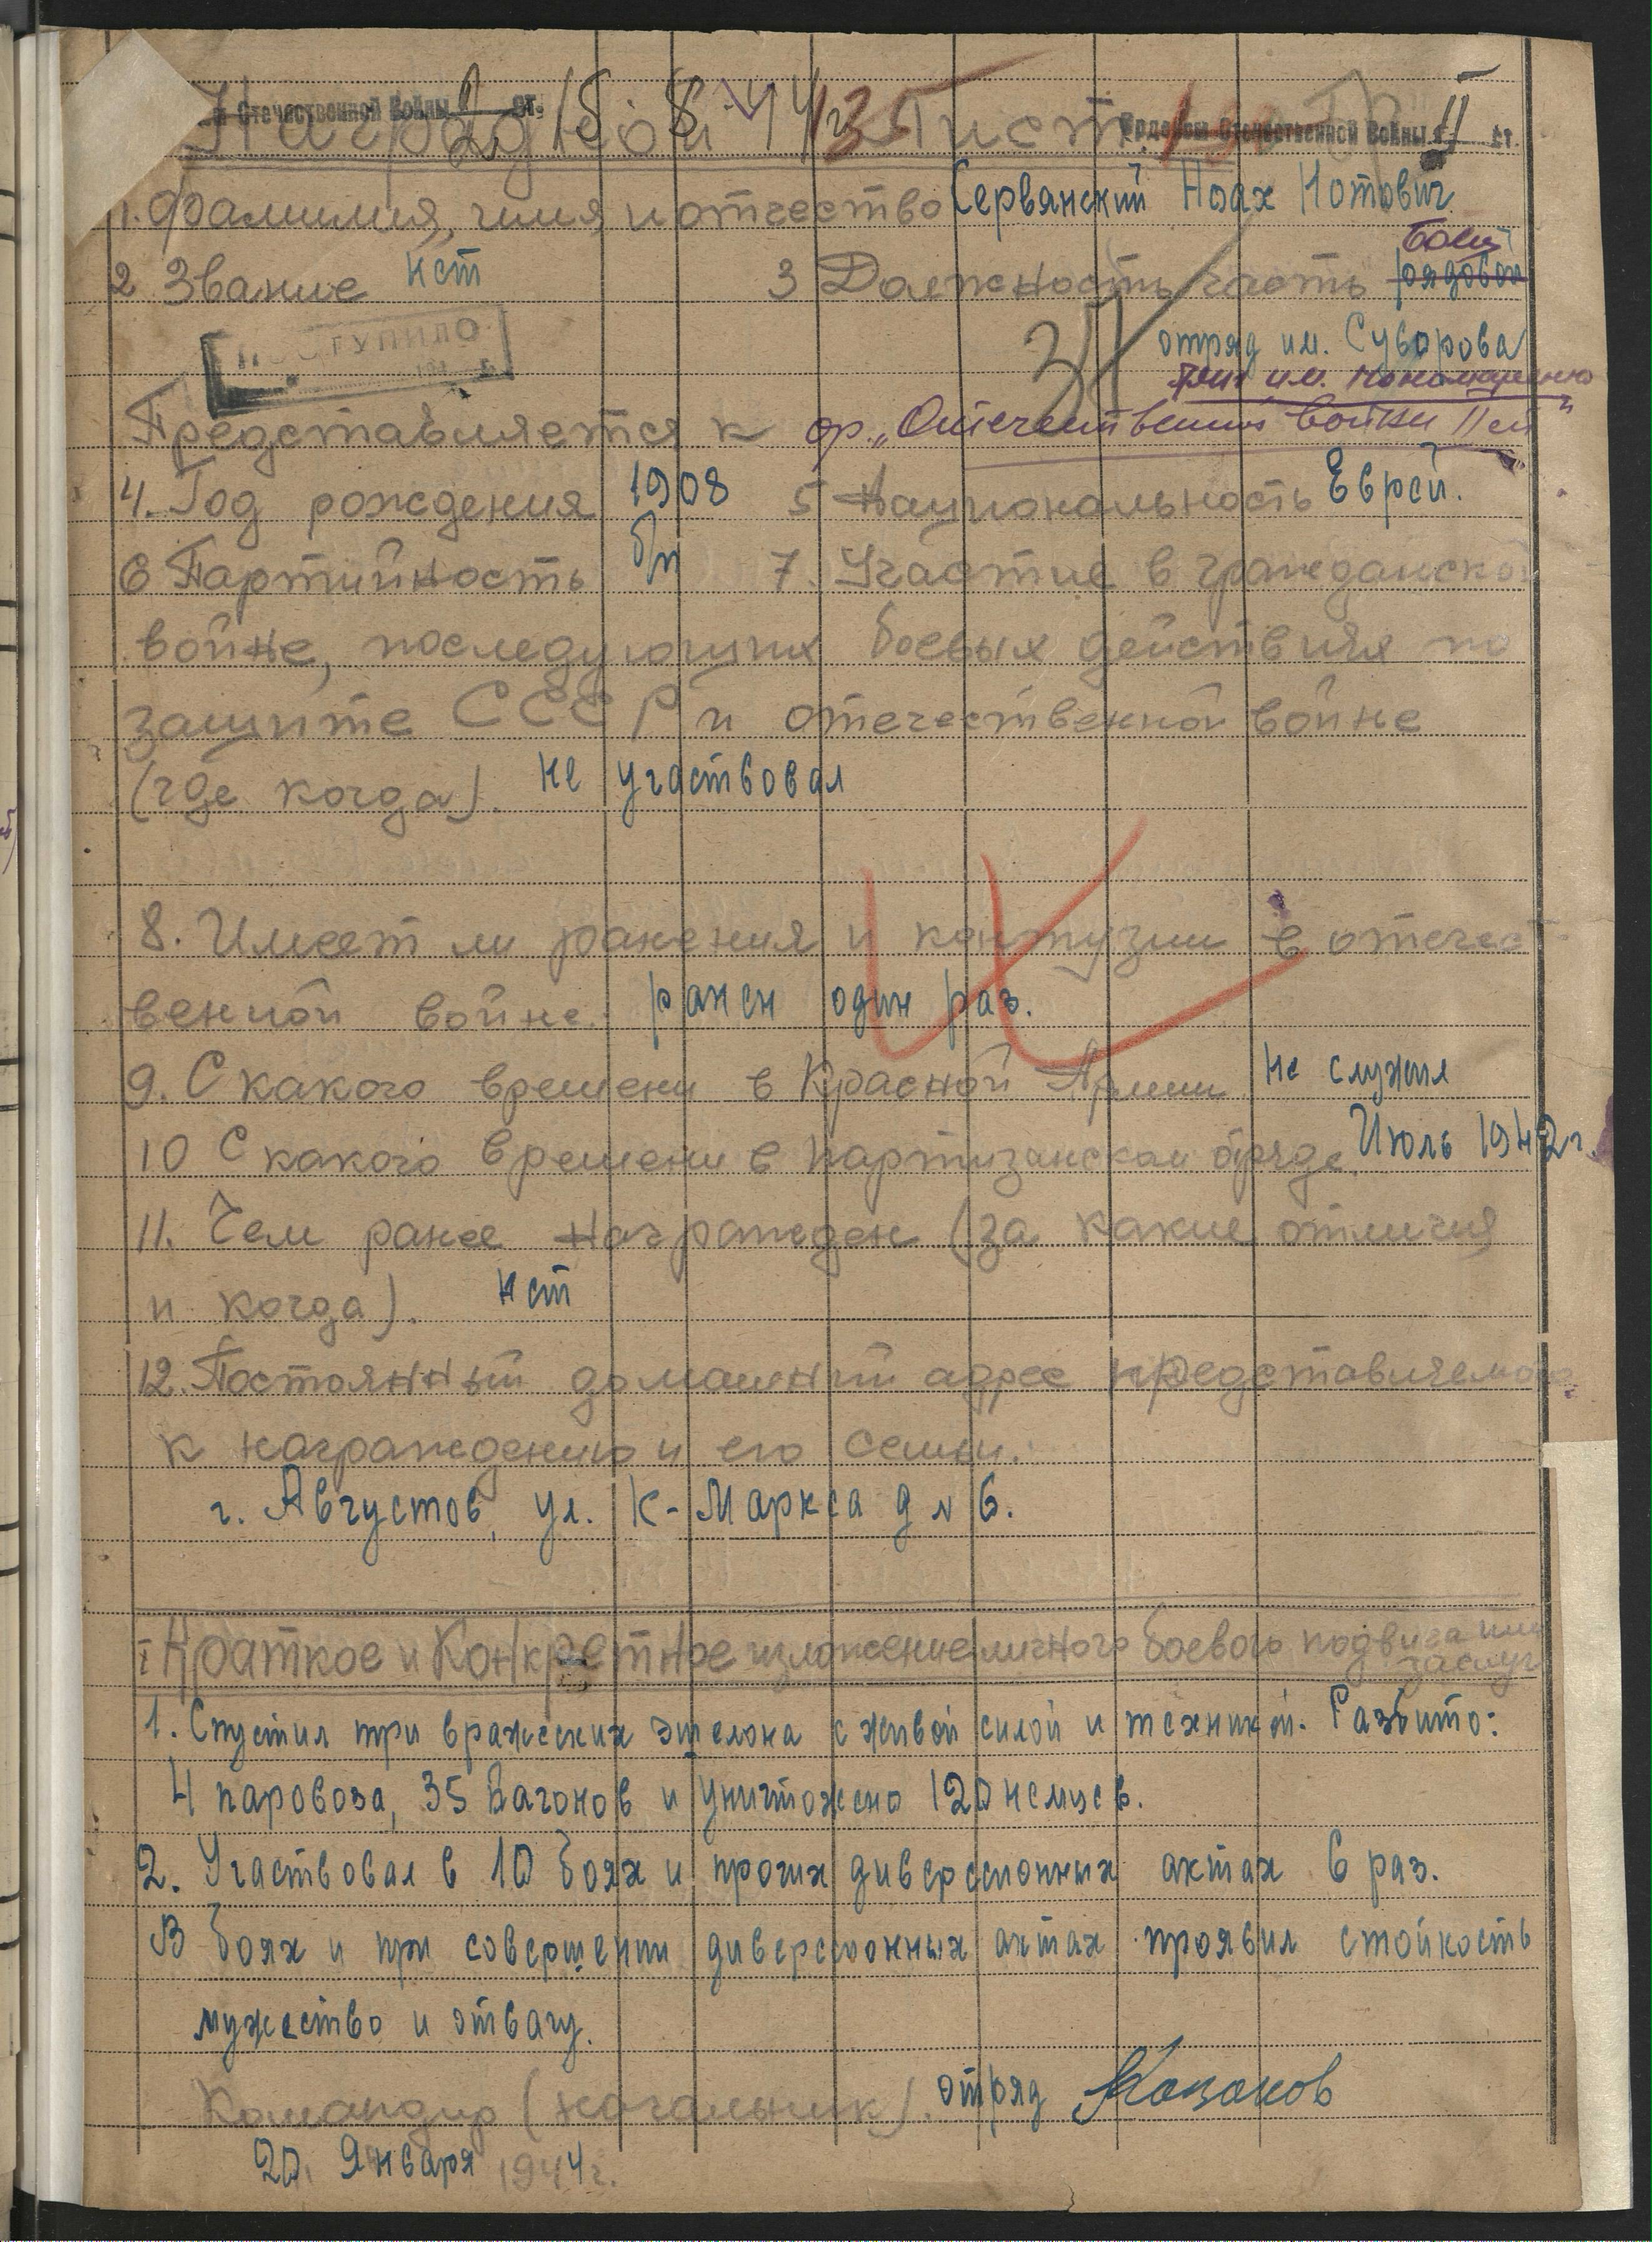 Отечественной Войны 2 ст.
Орденом Отечественной Войны II ст.
Наградной Лист
1. Фамилия, имя и отчество Сервянский Ноах Нотович
боец
2 Звание нет 3 Должность, часть рядовой
ПОСТУПИЛО
31 отряд им. Суворова
им. Пономаренко
Представляется к ор. „Отечественной войны II ст"
4. Год рождения 1908 5 Национальность Еврей.
6 Партийность б/п 7. Участие в гражданской
войне, последующих боевых действиях по
защите СССР и отечественной войне
(где когда). не участвовал
8. Имеет ли ранения и контузии в отечест
венной войне. ранен один раз.
9. С какого времени в Красной Армии. Не служил
10 С какого времени в партизанском отряде. Июль 1942 г.
11. Чем ранее награжден (за какие отличия
и когда). нет
12. Постоянный домашний адрес представляемого
к награждению и его семьи.
г. Августов, ул. К-Маркса д № 6.
I Краткое и Конкретное изложение личного боевого подвига или
заслуг
1. Спустил три вражеских эшелона с живой силой и техникой. Разбито:
4 паровоза, 35 вагонов и уничтожено 120 немцев.
2. Участвовал в 10 боях и прочих диверсионных актах 6 раз.
В боях и при совершении диверсионных актах проявил стойкость
мужество и отвагу.
Командир (начальник). отряд Казаков
20. Января 1944 г.